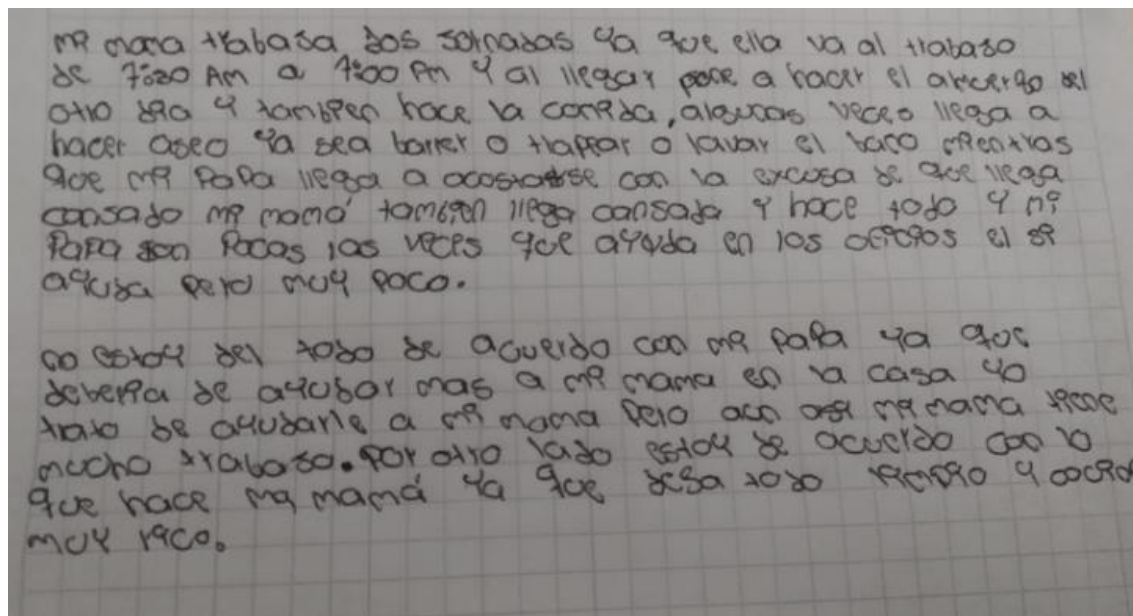 mi mama trabaja dos jornadas ya que ella va al trabajo
de 7:20 AM a 7:00 PM y al llegar pone a hacer el almuerzo del
otro dia y tambien hace la comida, algunas veces llega a
hacer aseo ya sea barrer o trapear o lavar el baño mientras
que mi papa llega a acostarse con la excusa de que llega
cansado mi mamá tambien llega cansada y hace todo y mi
papa son pocas las veces que ayuda en los oficios el si
ayuda pero muy poco.

no estoy del todo de acuerdo con mi papa ya que
deberia de ayudar mas a mi mama en la casa yo
trato de ayudarle a mi mama pero aun asi mi mama tiene
mucho trabajo. Por otro lado estoy de acuerdo con lo
que hace mi mamá ya que deja todo limpio y cocina
muy rico.